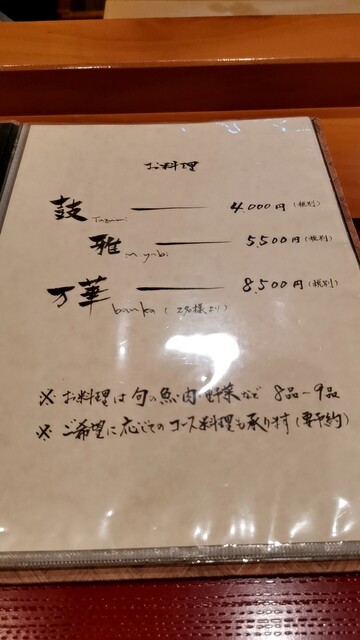 お料理
鼓 Tuzumi 4,000円(税別)
雅 miyabi 5,500円(税別)
万華 banka (2名様より) 8,500円(税別)
※ お料理は旬の魚・肉・野菜など 8品〜9品
※ ご希望に応じてのコース料理も承ります(要予約)